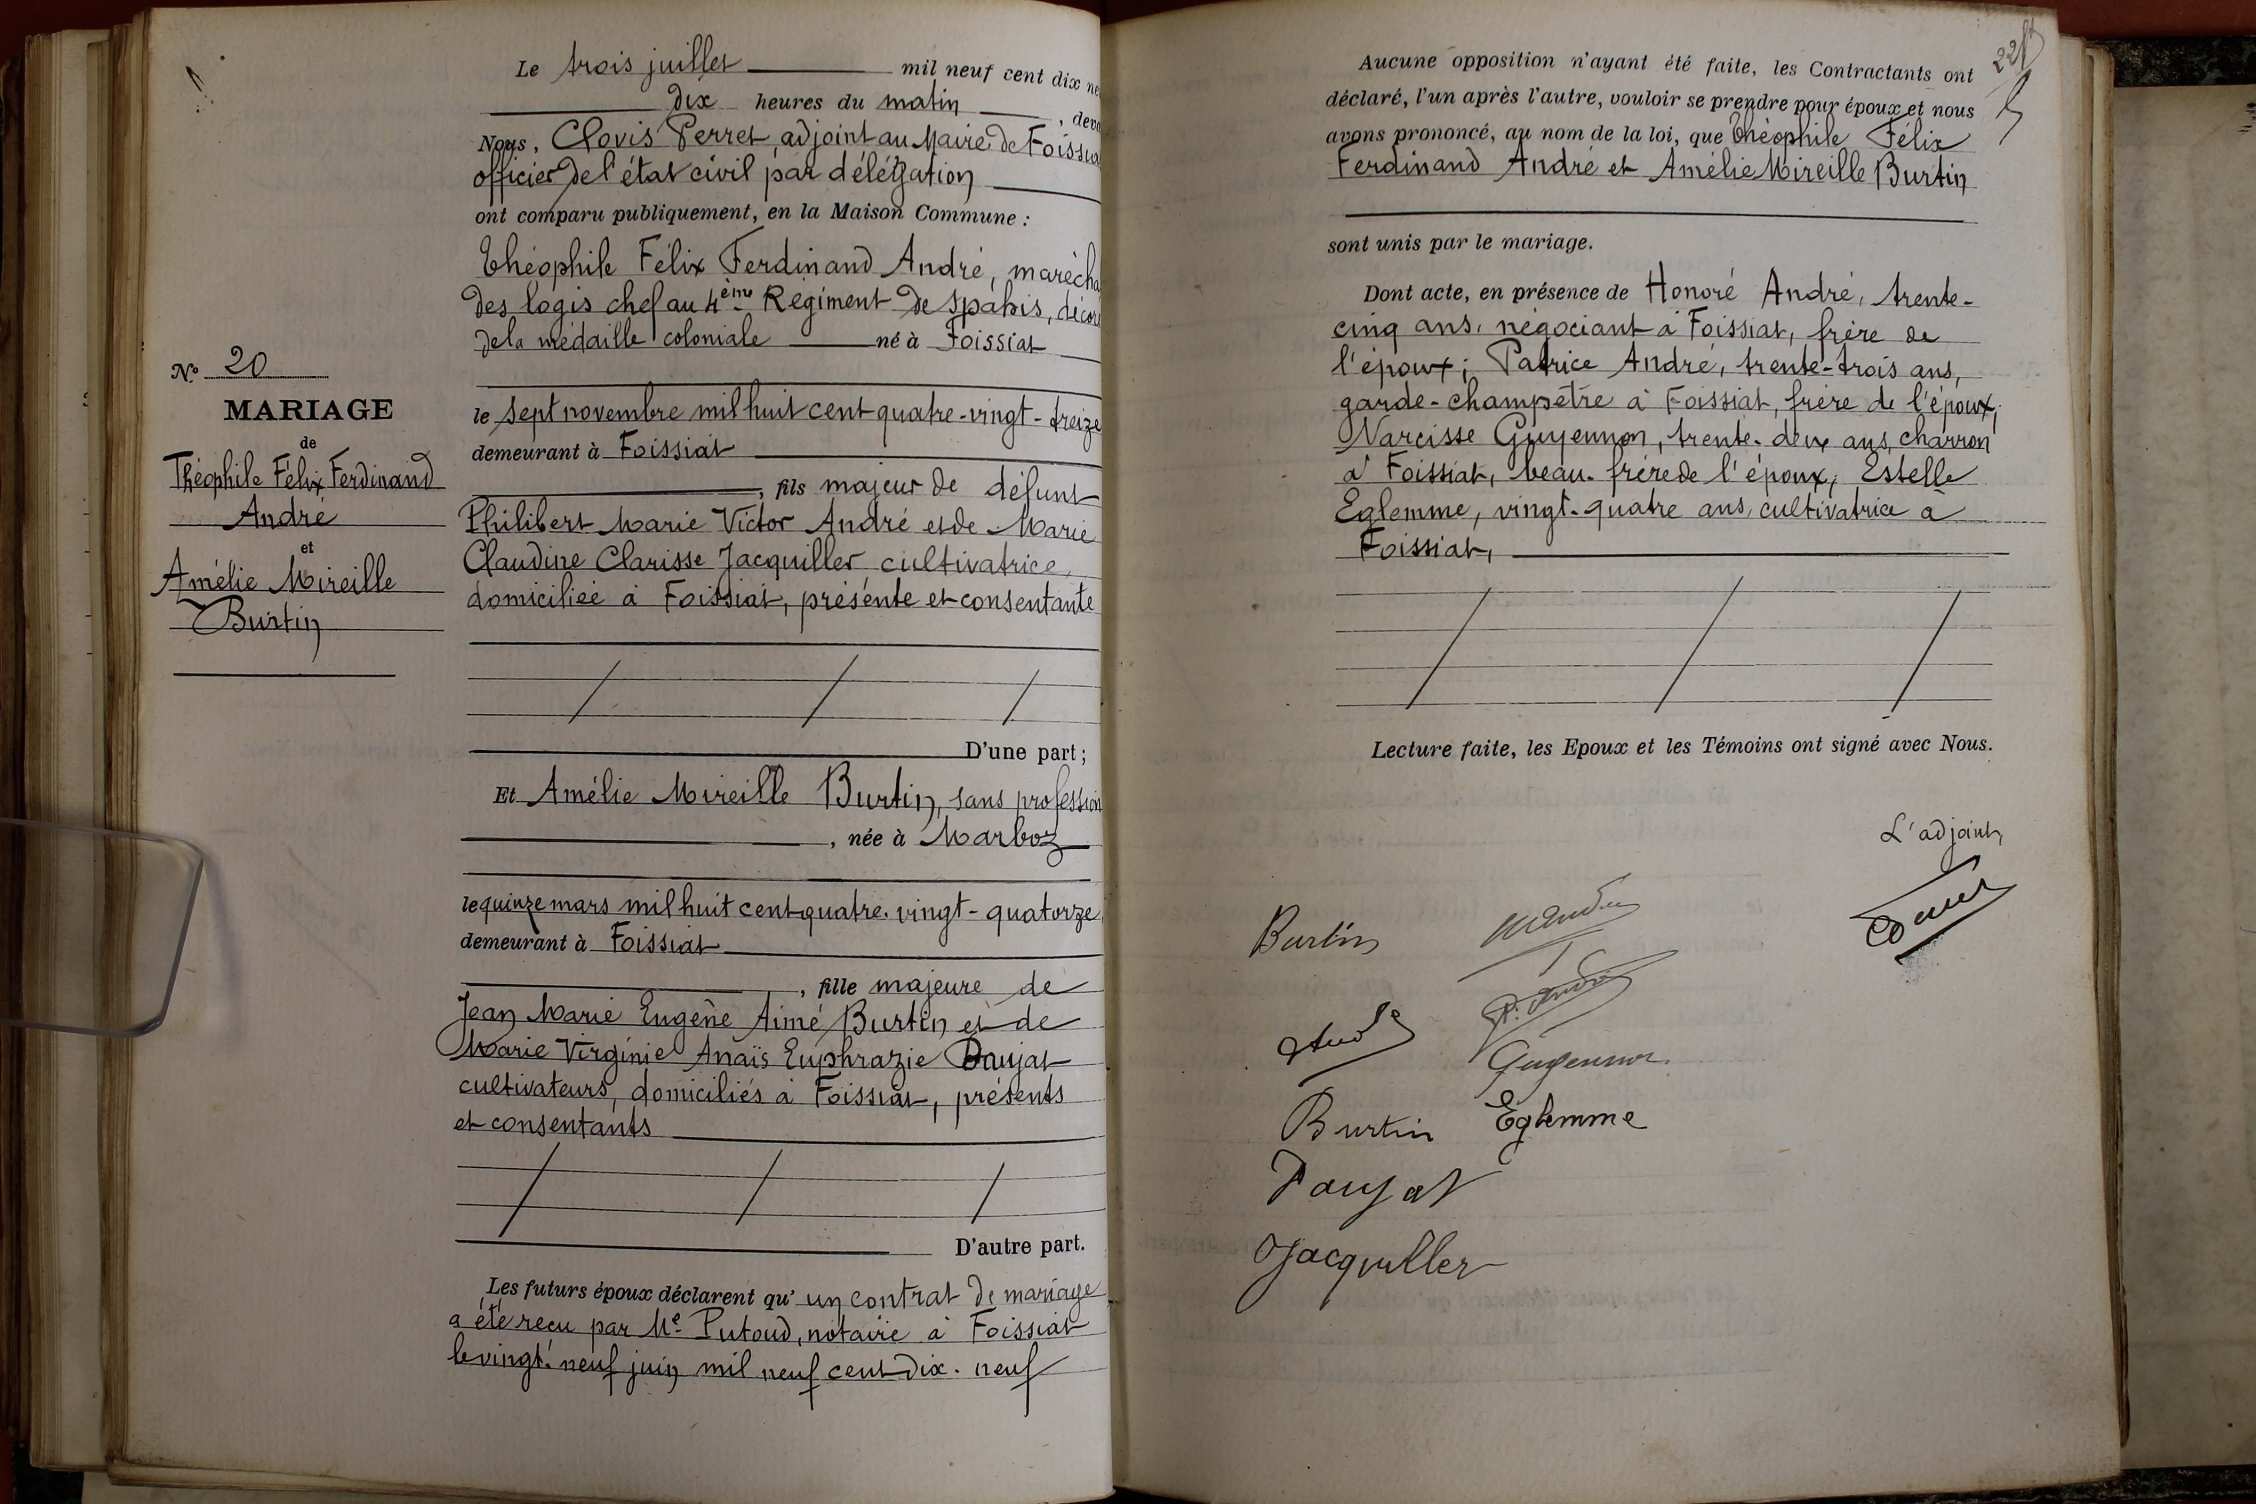 Le trois juillet mil neuf cent dix ne
dix heures du matin, deva
Nous, Clovis Perret adjoint au Maire de Foissia
officier de l'état civil par délégation
ont comparu publiquement, en la Maison Commune :
Théophile Félix Ferdinand André, marécha
des logis chef au 4ème Régiment de Spahis, décoré
de la médaille coloniale né à Foissiat
le sept novembre mil huit cent quatre-vingt-treize
demeurant à Foissiat
, fils majeur de défunt
Philibert Marie Victor André et de Marie
Claudine Clarisse Jacquiller cultivatrice,
domiciliée à Foissiat, présente et consentante
D'une part ;
Et Amélie Mireille Burtin, sans profession
, née à Marboz
le quinze mars mil huit cent quatre-vingt-quatorze
demeurant à Foissiat
, fille majeure de
Jean Marie Eugène Aimé Burtin et de
Marie Virginie Anaïs Euphrazie Daujat
cultivateurs, domiciliés à Foissiat, présents
et consentants
D'autre part.
Les futurs époux déclarent qu'un contrat de mariage
a été reçu par Me Putoud, notaire à Foissiat
le vingt-neuf juin mil neuf cent dix-neuf
No 20
MARIAGE
de
Théophile Félix Ferdinand
André
et
Amélie Mireille
Burtin
Aucune opposition n'ayant été faite, les Contractants ont
déclaré, l'un après l'autre, vouloir se prendre pour époux et nous
avons prononcé, au nom de la loi, que Théophile Félix
Ferdinand André et Amélie Mireille Burtin
sont unis par le mariage.
Dont acte, en présence de Honoré André, trente-
cinq ans, négociant à Foissiat, frère de
l'époux ; Patrice André, trente-trois ans,
garde-champêtre à Foissiat, frère de l'époux,
Narcisse Guyennon, trente-deux ans, charron
à Foissiat, beau-frère de l'époux, Estelle
Eglemme, vingt-quatre ans, cultivatrice à
Foissiat,
Lecture faite, les Epoux et les Témoins ont signé avec Nous.
L'adjoint,
Burtin
André
P. André
Guyennon
Burtin
Eglemme
Daujat
Jacquiller